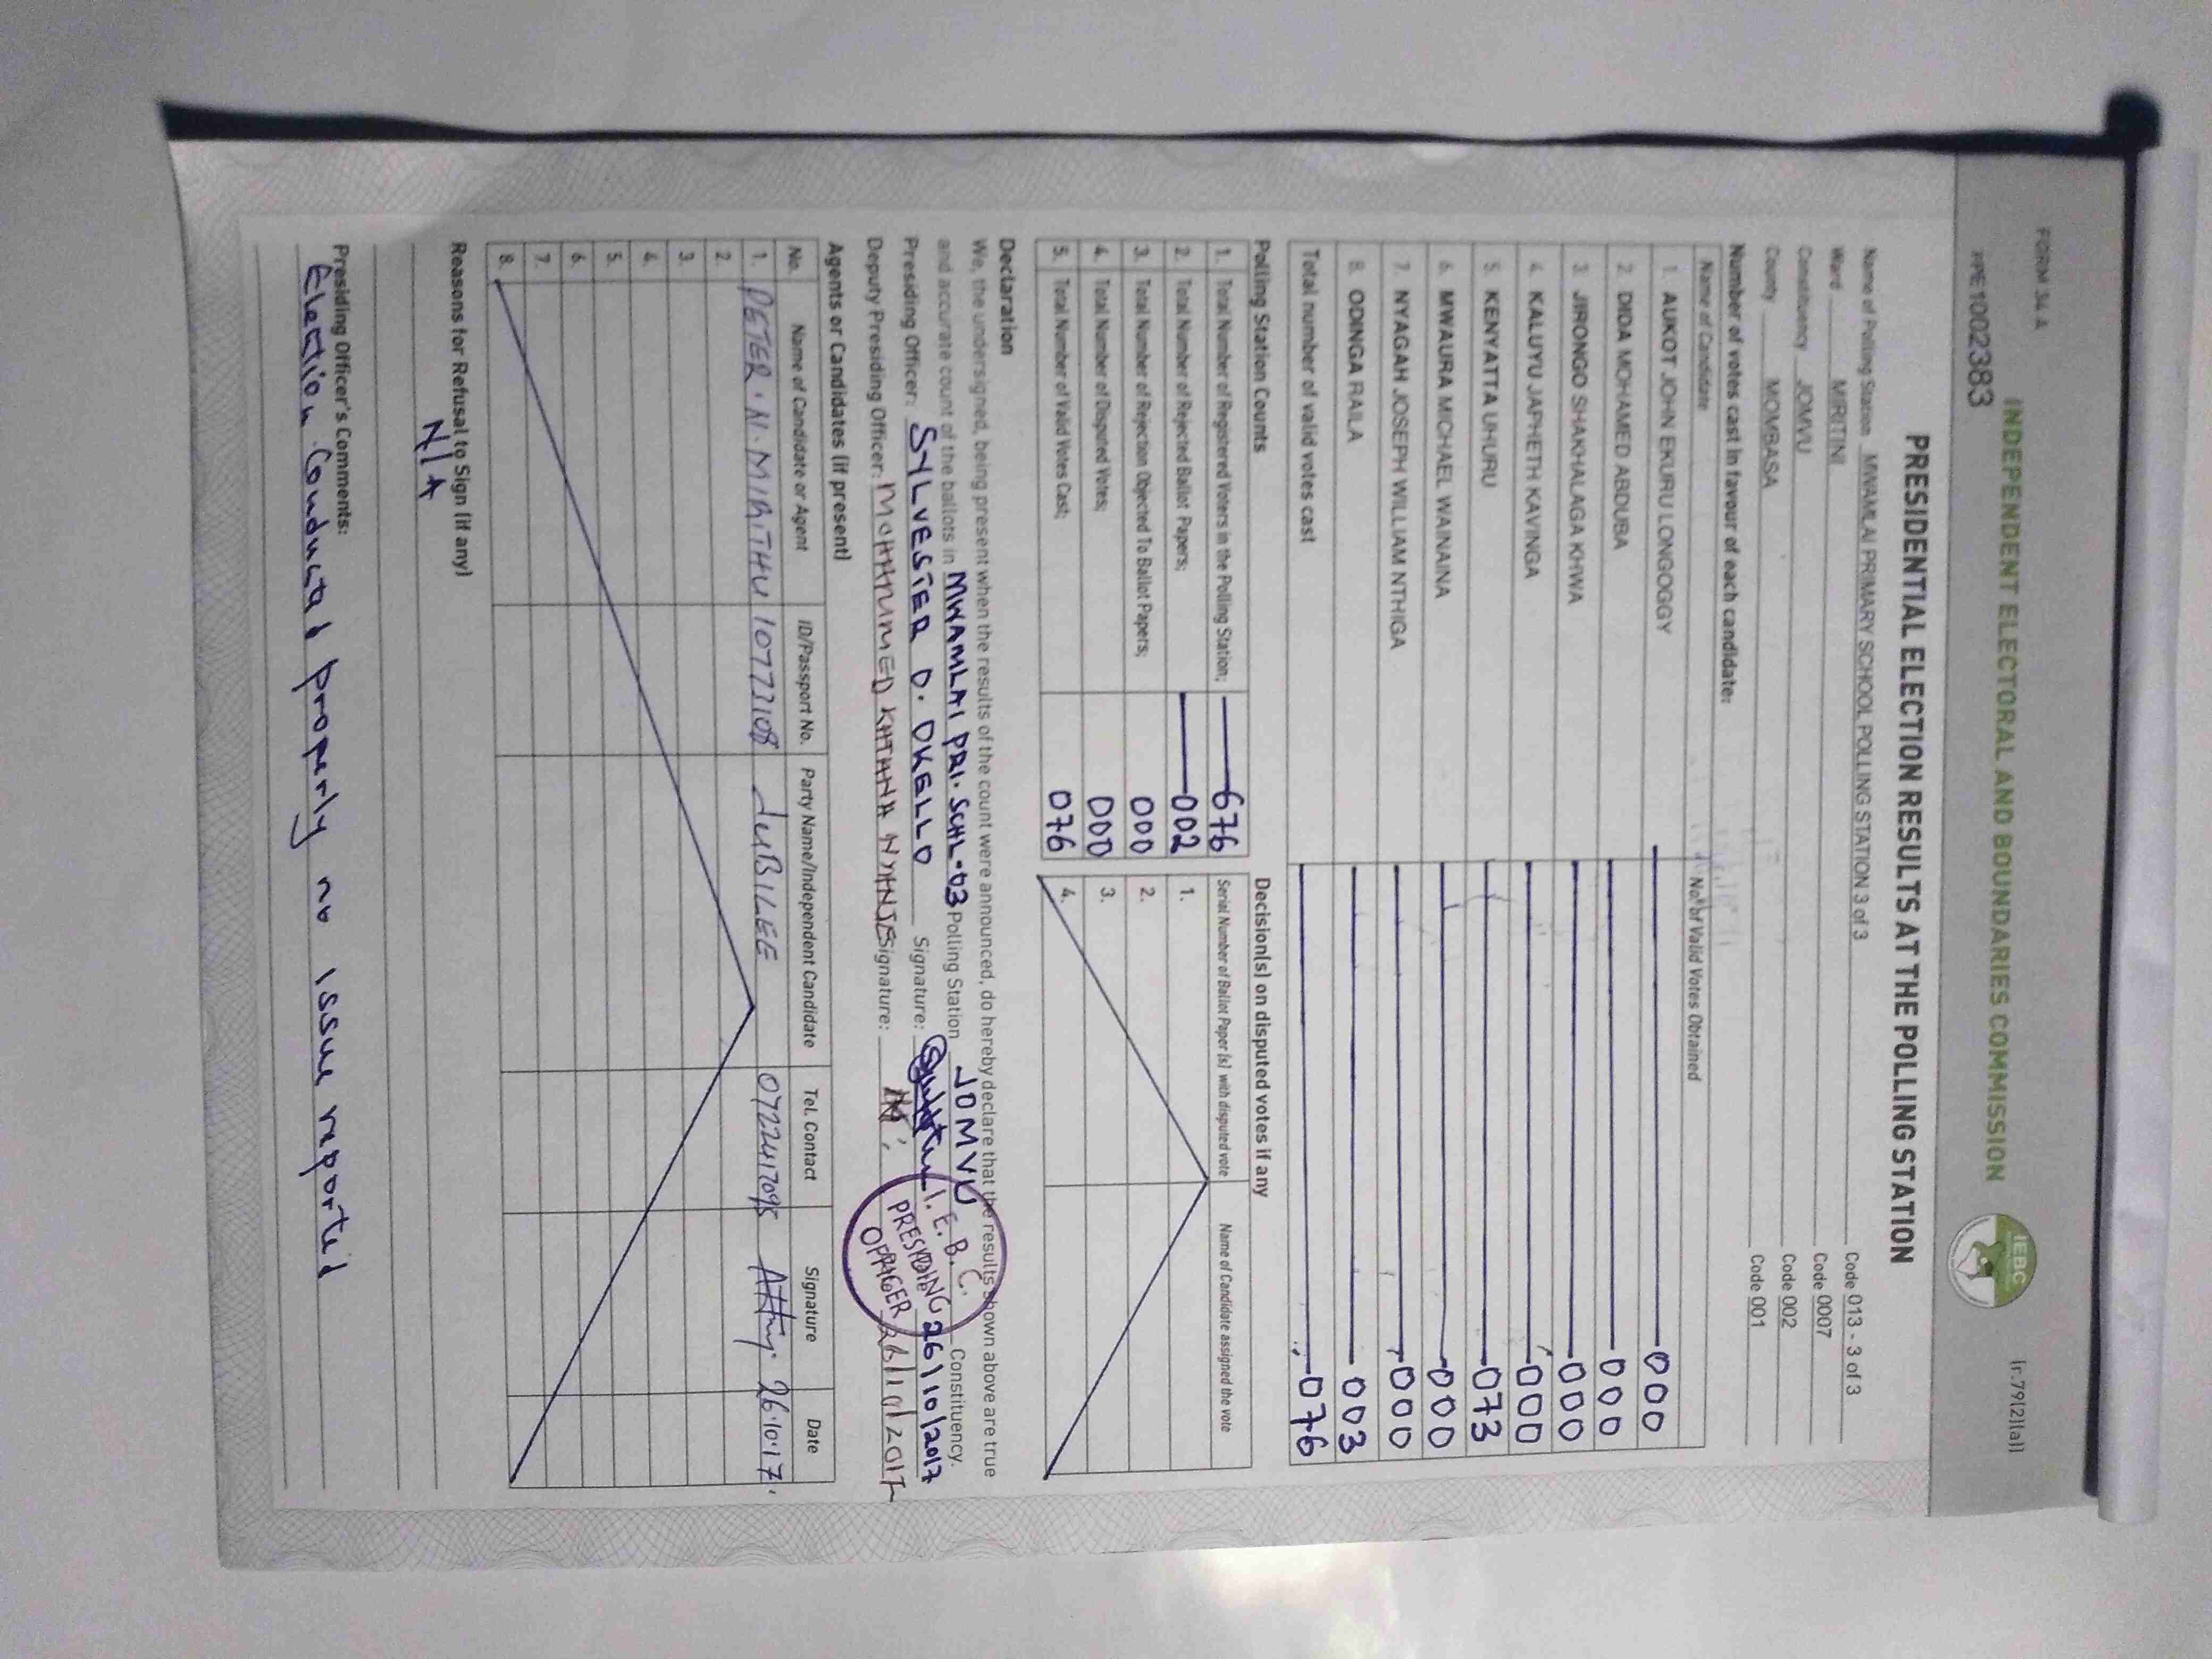 FORM 34 A
(r.79(2)(a))
INDEPENDENT ELECTORAL AND BOUNDARIES COMMISSION
IEBC
PPE1002383
PRESIDENTIAL ELECTION RESULTS AT THE POLLING STATION
Name of Polling Station MWAMLAI PRIMARY SCHOOL POLLING STATION 3 of 3 Code 013 - 3 of 3
Ward MIRITINI Code 0007
Constituency JOMVU Code 002
County MOMBASA Code 001
Number of votes cast in favour of each candidate:
Name of Candidate No. of Valid Votes Obtained
1. AUKOT JOHN EKURU LONGOGGY 000
2. DIDA MOHAMED ABDUBA 000
3. JIRONGO SHAKHALAGA KHWA 000
4. KALUYU JAPHETH KAVINGA 000
5. KENYATTA UHURU 073
6. MWAURA MICHAEL WAINAINA 000
7. NYAGAH JOSEPH WILLIAM NTHIGA 000
8. ODINGA RAILA 003
Total number of valid votes cast 076
Polling Station Counts
1. Total Number of Registered Voters in the Polling Station; 676
2. Total Number of Rejected Ballot Papers; 002
3. Total Number of Rejection Objected To Ballot Papers; 000
4. Total Number of Disputed Votes; 000
5. Total Number of Valid Votes Cast; 076
Decision(s) on disputed votes if any
Serial Number of Ballot Paper (s) with disputed vote Name of Candidate assigned the vote
1.
2.
3.
4.
Declaration
We, the undersigned, being present when the results of the count were announced, do hereby declare that the results shown above are true
and accurate count of the ballots in MWAMLAI PRI. SCHL-03 Polling Station JOMVU Constituency.
Presiding Officer: SYLVESTER D. OKELLO Signature: 26/10/2017
Deputy Presiding Officer: MOHAMMED KATANA NYANJE Signature: 26/10/2017
I.E.B.C.
PRESIDING
OFFICER
Agents or Candidates (if present)
No. Name of Candidate or Agent ID/Passport No. Party Name/Independent Candidate Tel. Contact Signature Date
1. PETER. N. MIRITHU 10773108 JUBILEE 0722417095 26.10.17.
2.
3.
4.
5.
6.
7.
8.
Reasons for Refusal to Sign (if any)
N/A
Presiding Officer's Comments:
Election Conducted properly no issue reported